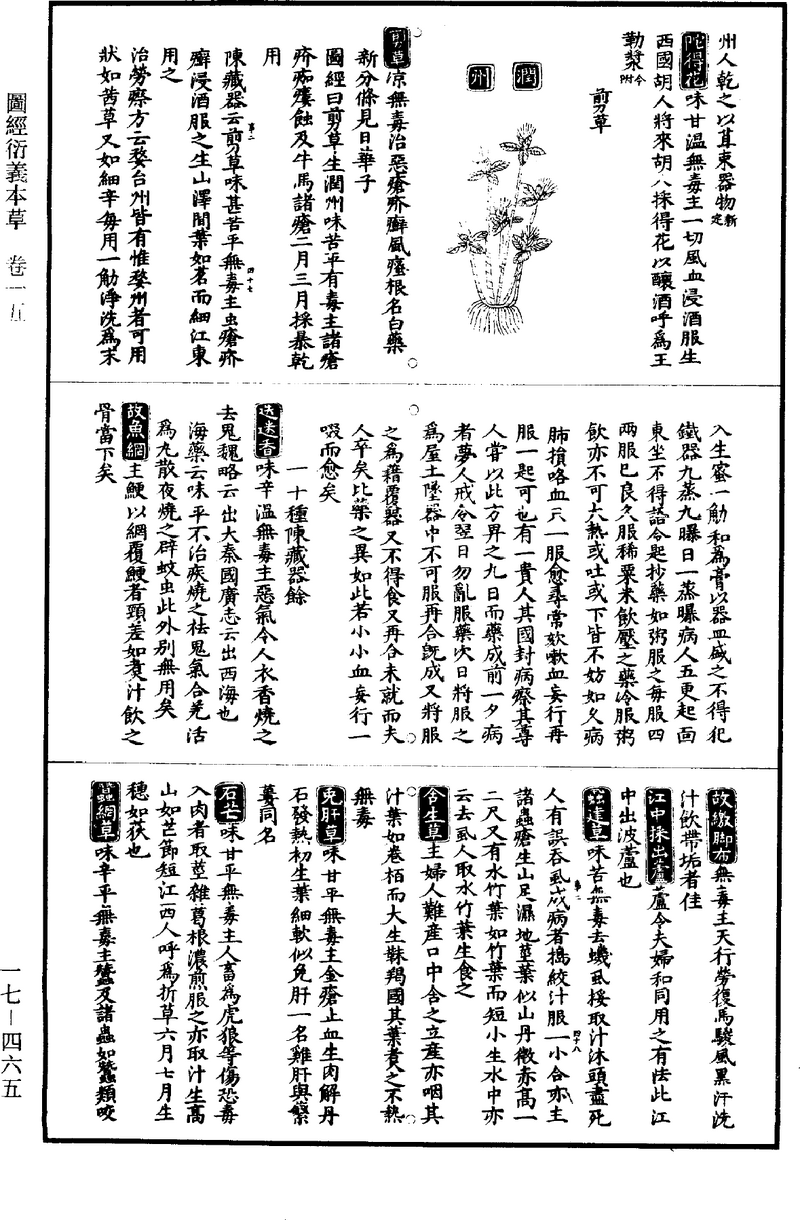 圖經衍義本草　卷一五
州人乾之以葺束器物新定
陀得花味甘溫無毒主一切風血浸酒服生
西國胡人將來胡人採得花以釀酒呼為王
勒漿今附
剪草
潤
州
剪草涼無毒治惡瘡疥癬風瘙根名白藥
新分條見日華子
圖經曰剪草生潤州味苦平有毒主諸瘡
疥痂瘻蝕及牛馬諸瘡二月三月採暴乾
用
陳藏器云剪草味甚苦平無毒主虫瘡疥
癬浸酒服之生山澤間葉如茗而細江東
用之
治勞瘵方云婺台州皆有惟婺州者可用
狀如茜草又如細辛每用一觔淨洗為末
入生蜜一觔和為膏以器皿盛之不得犯
鐵器九蒸九曝日一蒸曝病人五更起面
東坐不得語令匙抄藥如粥服之每服四
兩服已良久服稀粟米飲壓之藥冷服粥
飲亦不可大熱或吐或下皆不妨如久病
肺損咯血只一服愈尋常欬嗽血妄行再
服一匙可也有一貴人其國封病瘵其尊
人嘗以此方畀之九日而藥成前一夕病
者夢人戒令翌日勿亂服藥次日將服之
為屋土墜器中不可服再合既成又將服
之為籍覆器又不得食又再合未就而夫
人卒矣比藥之異如此若小小血妄行一
啜而愈矣
一十種陳藏器餘
迷迭香味辛溫無毒主惡氣令人衣香燒之
去鬼魏略云出大秦國廣志云出西海也
海藥云味平不治疾燒之祛鬼氣合羌活
為丸散夜燒之辟蚊虫此外別無用矣
故魚網主鯁以網覆鯁者頸差如煮汁飲之
骨當下矣
故繳脚布無毒主天行勞復馬駿風黑汗洗
汁飲帶垢者佳
江中採出蘆蘆令夫婦和同用之有法此江
中出波蘆也
蝨建草味苦無毒去蟣虱挼取汁沐頭盡死
人有誤吞虱成病者搗絞汁服一小合亦主
諸蟲瘡生山足濕地莖葉似山丹微赤高一
二尺又有水竹葉如竹葉而短小生水中亦
云去虱人取水竹葉生食之
含生草主婦人難產口中含之立產亦咽其
汁葉如卷栢而大生靺羯國其葉煮之不熱
無毒
兔肝草味甘平無毒主金瘡止血生肉解丹
石發熱初生葉細軟似兔肝一名雞肝與蘩
蔞同名
石芒味甘平無毒主人畜為虎狼等傷恐毒
入肉者取莖雜葛根濃煎服之亦取汁生高
山如芒節短江西人呼為折草六月七月生
穗如荻也
蠶網草味辛平無毒主蠶及諸蟲如蠶類咬
一七－四六五